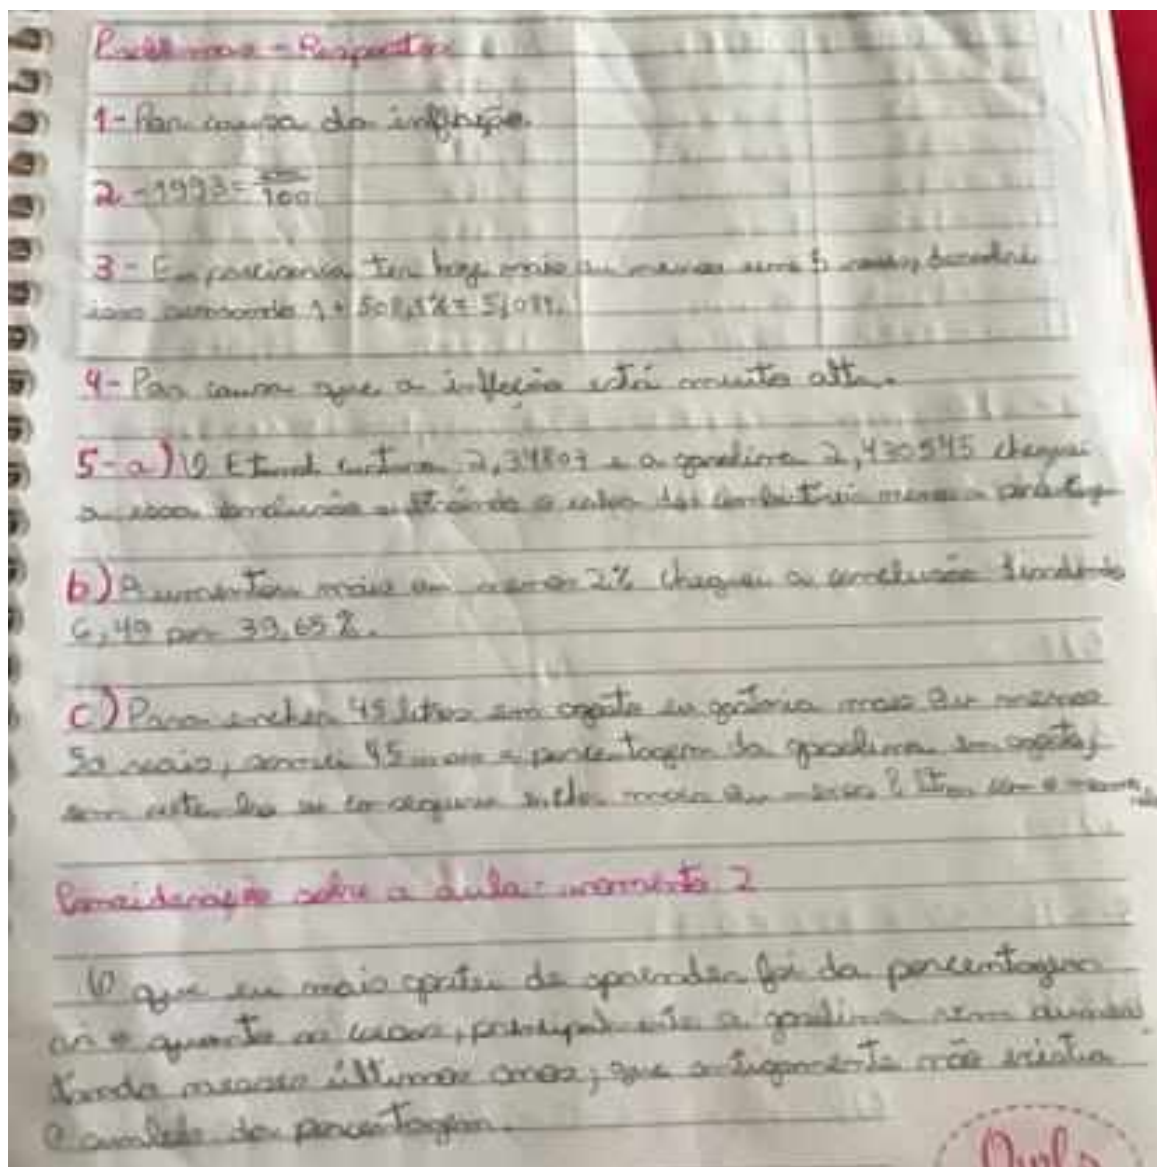 Problemas - Respostas
1- Por causa da inflação.
2 - 1993 = 100
3 - É preciso ter hoje mais ou menos uns 5 reais, descobri
isso somando 1 + 508,1% = 5,081.
4- Por causa que a inflação está muito alta.
5-a) O Etanol custava 2,34807 e a gasolina 2,430545 cheguei
a essa conclusão subtraindo o valor dos combustíveis menos a
b) Aumentou mais ou menos 2% cheguei a conclusão
6,49 por 39,65%.
c) Para encher 45 litros em agosto eu gastaria mais ou menos
50 reais, somei 45 mais a porcentagem da gasolina em agosto,
eu conseguiria encher mais ou menos litros com o mesmo
Consideração sobre a aula - momento 2
O que eu mais gostei de aprender foi da porcentagem
quanto as coisas, principalmente a gasolina vem aumen
tando nesses últimos anos, que antigamente não existia
porcentagem.